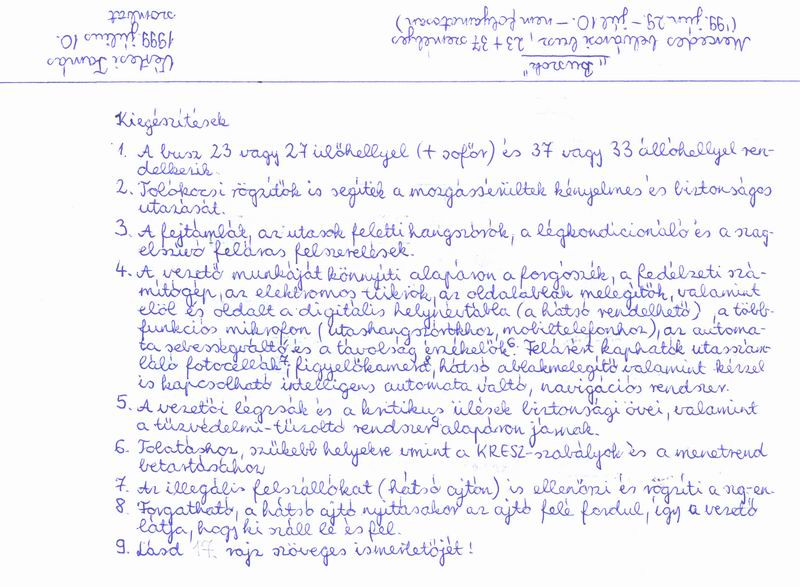 „Buszok"
Mercedes belvárosi busz, 23 + 37 személyes
('99. jún. 29. – júl. 10. – nem folyamatosan)
Vértesi Tamás
1999 július 10.
szombat
Kiegészítések
1. A busz 23 vagy 27 ülőhellyel (+ sofőr) és 37 vagy 33 állóhellyel ren-
delkezik.
2. Tolókocsi rögzítők is segítik a mozgássérültek kényelmes és biztonságos
utazását.
3. A fejtámlák, az utasok feletti hangszórók, a légkondicionáló és a szag-
elszívó feláras felszerelések.
4. A vezető munkáját könnyíti alapáron a forgószék, a fedélzeti szá-
mítógép, az elektromos tükrök, az oldalablak melegítők, valamint
elöl és oldalt a digitális helynévtábla (a hátsó rendelhető), a több-
funkciós mikrofon (utashangszórókhoz, mobiltelefonhoz), az automa-
ta sebességváltó és a távolság érzékelők⁶. Felárért kaphatók utasszám-
láló fotocellák⁷, figyelőkamera⁸, hátsó ablakmelegítő valamint kézzel
is kapcsolható intelligens automata váltó, navigációs rendszer.
5. A vezetői légzsák és a kritikus ülések biztonsági övei, valamint
a tűzvédelmi-tűzoltó rendszer⁹ alapáron járnak.
6. Tolatáshoz, szűkebb helyekre, mint a KRESZ-szabályok és a menetrend
betartásához
7. Az illegális felszállókat (hátsó ajtón) is ellenőrzi és rögzíti a szg-en.
8. Forgatható, a hátsó ajtó nyitásakor az ajtó felé fordul, így a vezető
látja, hogy ki száll le és fel.
9. Lásd 17. rajz szöveges ismertetőjét!